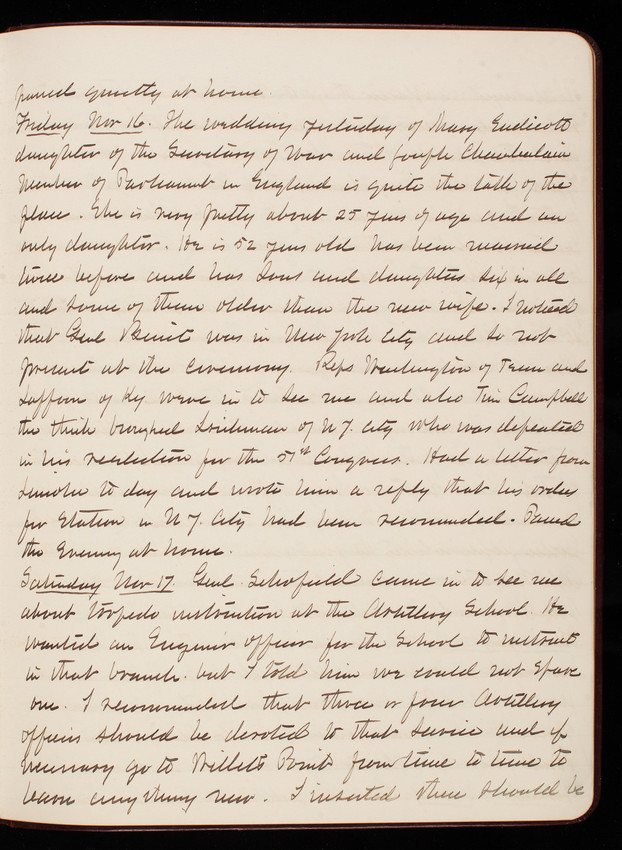 passed quietly at home.
Friday Nov 16. The wedding yesterday of Mary Endicott
daughter of the Secretary of War and Joseph Chamberlain
Member of Parliament in England is quite the talk of the
place. She is very pretty about 25 years of age and an
only daughter. He is 52 years old has been married
twice before and has sons and daughters six in all
and some of them older than the new wife. I noticed
that Genl Benét was in New York City and so not
present at the ceremony. Reps Washington of Tenn and
Laffoon of Ky were in to see me and also Tim Campbell
the thick brogued Irishman of N.Y. City who was defeated
in his reelection for the 51st Congress. Had a letter from
Lincoln to day and wrote him a reply that his orders
for Station in N.Y. City had been rescinded. Passed
the Evening at home.
Saturday Nov 17. Genl Schofield came in to see me
about torpedo instruction at the Artillery School. He
wanted an Engineer officer for the School to instruct
in that branch. but I told him we could not spare
one. I recommended that three or four Artillery
officers should be devoted to that service and if
necessary go to Willets Point from time to time to
learn anything new. I insisted there should be